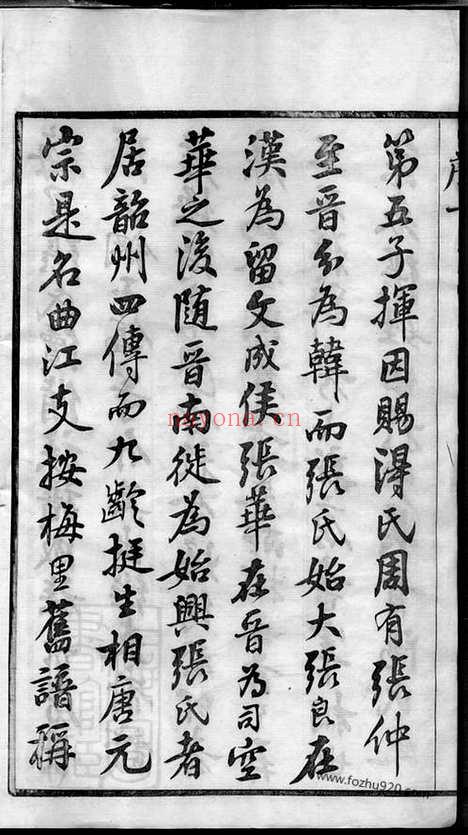 序一
第五子揮因賜得氏周有張仲
至晉分為韓而張氏始大張良在
漢為留文成侯張華在晉為司空
華之後随晉南徙為始興張氏者
居韶州四傳而九齡挺生相唐元
宗是名曲江支按梅里舊譜稱
nuyona.cn
www.fozhu920.com